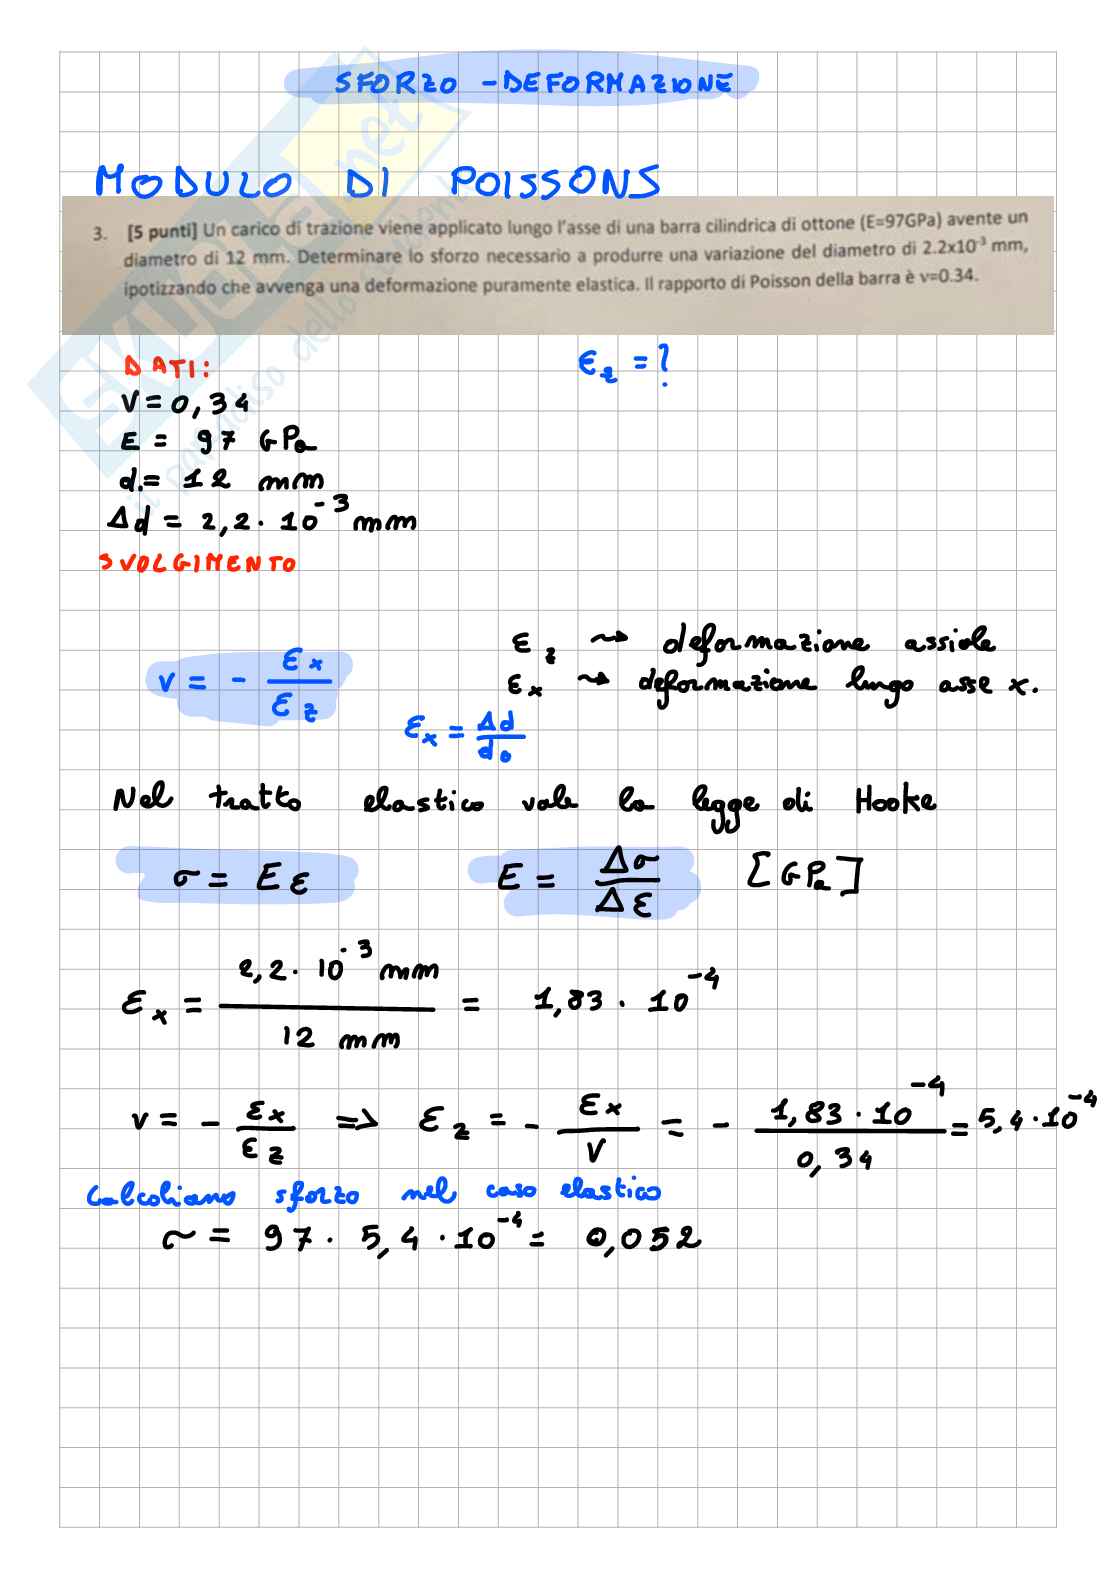 SFORZO - DEFORMAZIONE
MODULO DI POISSONS
3. [5 punti] Un carico di trazione viene applicato lungo l'asse di una barra cilindrica di ottone (E=97GPa) avente un
diametro di 12 mm. Determinare lo sforzo necessario a produrre una variazione del diametro di 2.2x10⁻³ mm,
ipotizzando che avvenga una deformazione puramente elastica. Il rapporto di Poisson della barra è ν=0.34.
DATI:
ε_z = ?
ν = 0,34
E = 97 GPa
d. = 12 mm
Δd = 2,2 · 10⁻³ mm
SVOLGIMENTO
ν = - ε_x / ε_z
ε_z ⇝ deformazione assiale
ε_x ⇝ deformazione lungo asse x.
ε_x = Δd / d₀
Nel tratto elastico vale la legge di Hooke
σ = E ε E = Δσ / Δε [GPa]
ε_x = 2,2 · 10⁻³ mm / 12 mm = 1,83 · 10⁻⁴
ν = - ε_x / ε_z ⇒ ε_z = - ε_x / ν = - 1,83 · 10⁻⁴ / 0,34 = 5,4 · 10⁻⁴
Calcoliamo sforzo nel caso elastico
σ = 97 · 5,4 · 10⁻⁴ = 0,052